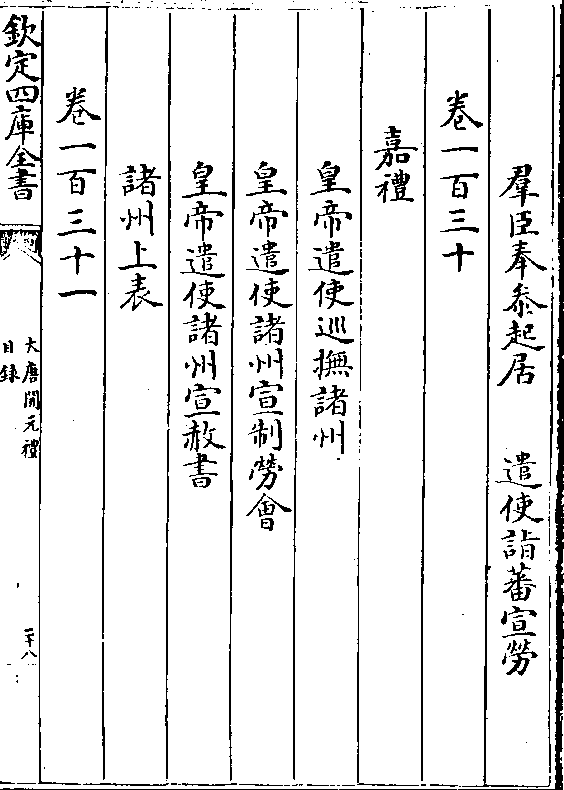 羣臣奉叅起居　遣使詣蕃宣勞
卷一百三十
嘉禮
皇帝遣使巡撫諸州
皇帝遣使諸州宣制勞會
皇帝遣使諸州宣赦書
諸州上表
卷一百三十一
欽定四庫全書
大唐開元禮
目錄
二十八